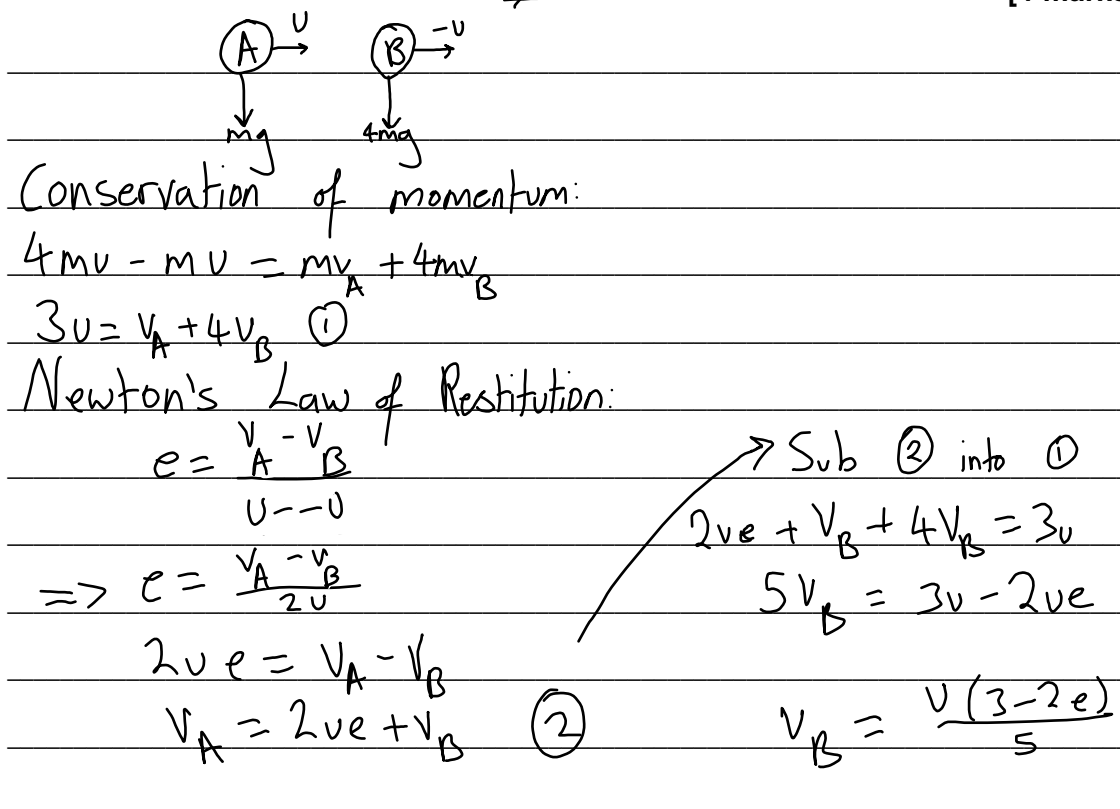 A U B -U
mg 4mg
Conservation of momentum:
4mu - mu = mv_A + 4mv_B
3u = v_A + 4v_B ①
Newton's Law of Restitution:
e = (v_A - v_B) / (u - -u)
=> e = (v_A - v_B) / 2u
2ue = v_A - v_B
v_A = 2ue + v_B ②
Sub ② into ①
2ue + v_B + 4v_B = 3u
5v_B = 3u - 2ue
v_B = u(3-2e) / 5